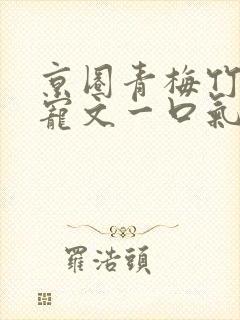 京圈青梅竹
寵文一口氣
羅浩頭